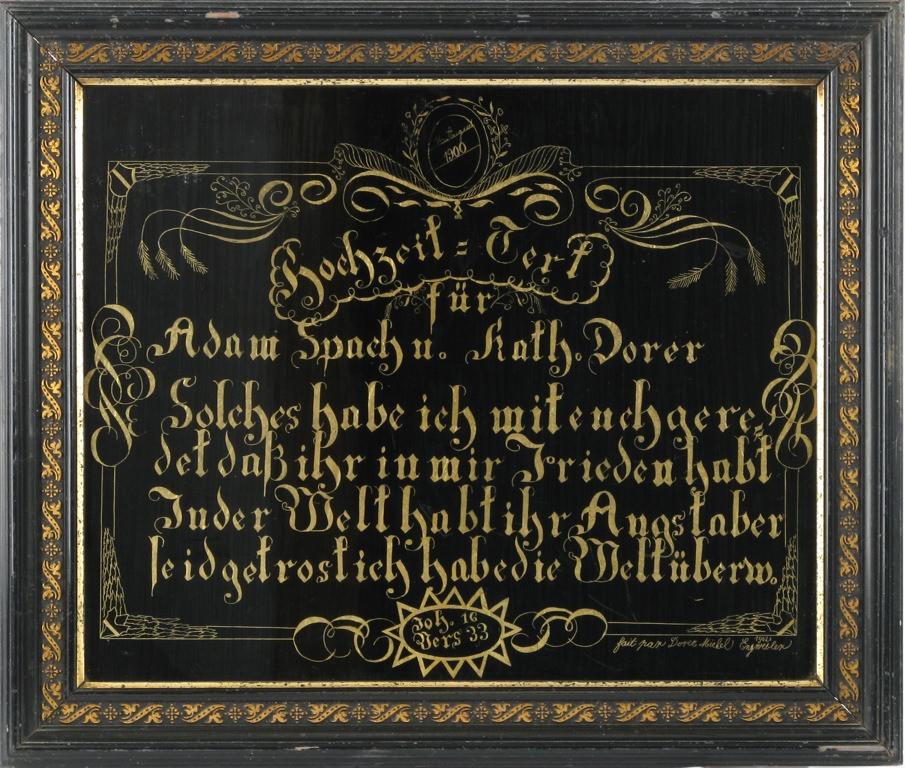 1900
Hochzeit = Text
für
Adam Spach u. Kath. Dorer
Solches habe ich mit euch gere=
det daß ihr in mir Frieden habt
In der Welt habt ihr Angst aber
seid getrost ich habe die Welt überw.
Joh. 16
Vers 33
fait par Dorer Michel